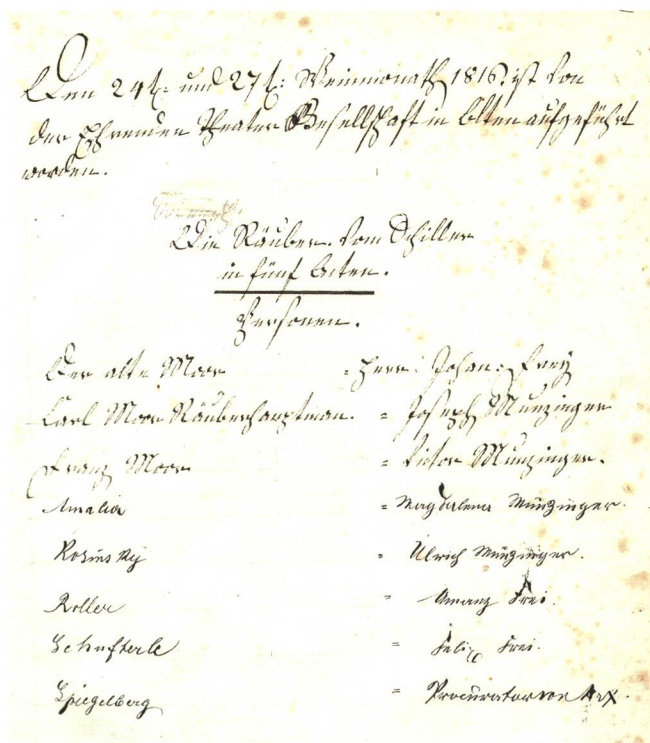 Den 24t: und 27t: Weinmonath 1816 ist von
der Ehrenden Theater Gesellschaft in Olten aufgeführt
worden.
Die Räuber. Vom Schiller
in fünf Acten.
Personen.
Der alte Moor = Herr: Johan: Frey
Carl Moor Räuberhauptman. = Joseph Munzinger
Franz Moor = Victor Munzinger.
Amalia = Magdalena Munzinger.
Kosinsky = Ulrich Munzinger.
Roller = Amanz Frei.
Schufterle = Felix Frei.
Spiegelberg = Procurator von Arx.